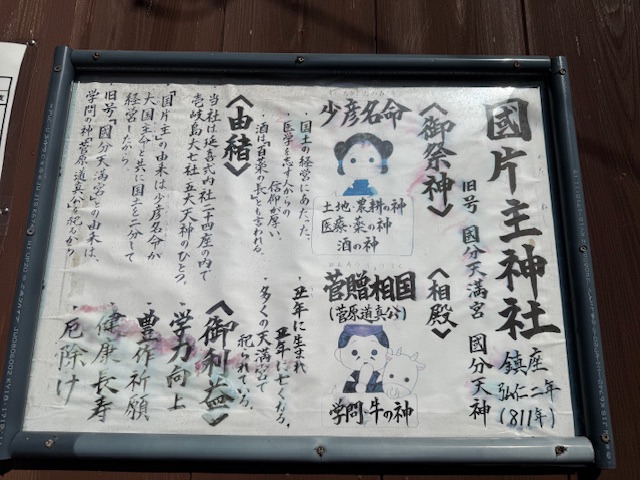 國片主神社
鎮座
弘仁二年
(811年)
旧号 国分天満宮 国分天神
《御祭神》
少彦名命
土地・農耕の神
医療・薬の神
酒の神
・国土の経営にあたった。
・医学を志す人からの
信仰が厚い
・酒は「百薬の長」とも言われる。
《相殿》
菅贈相国
(菅原道真公)
学問・牛の神
・丑年に生まれ
丑年に亡くなる。
・多くの天満宮で
祀られている。
《由緒》
当社は延喜式内社二十四座の内で
壱岐島大七社、五大天神のひとつ。
「国片主」の由来は少彦名命が
大国主命と共に国土を二分して
経営したから
旧号「國分天満宮」との由来は、
学問の神、菅原道真公を祀るから。
《御利益》
・学力向上
・豊作祈願
・健康長寿
・厄除け